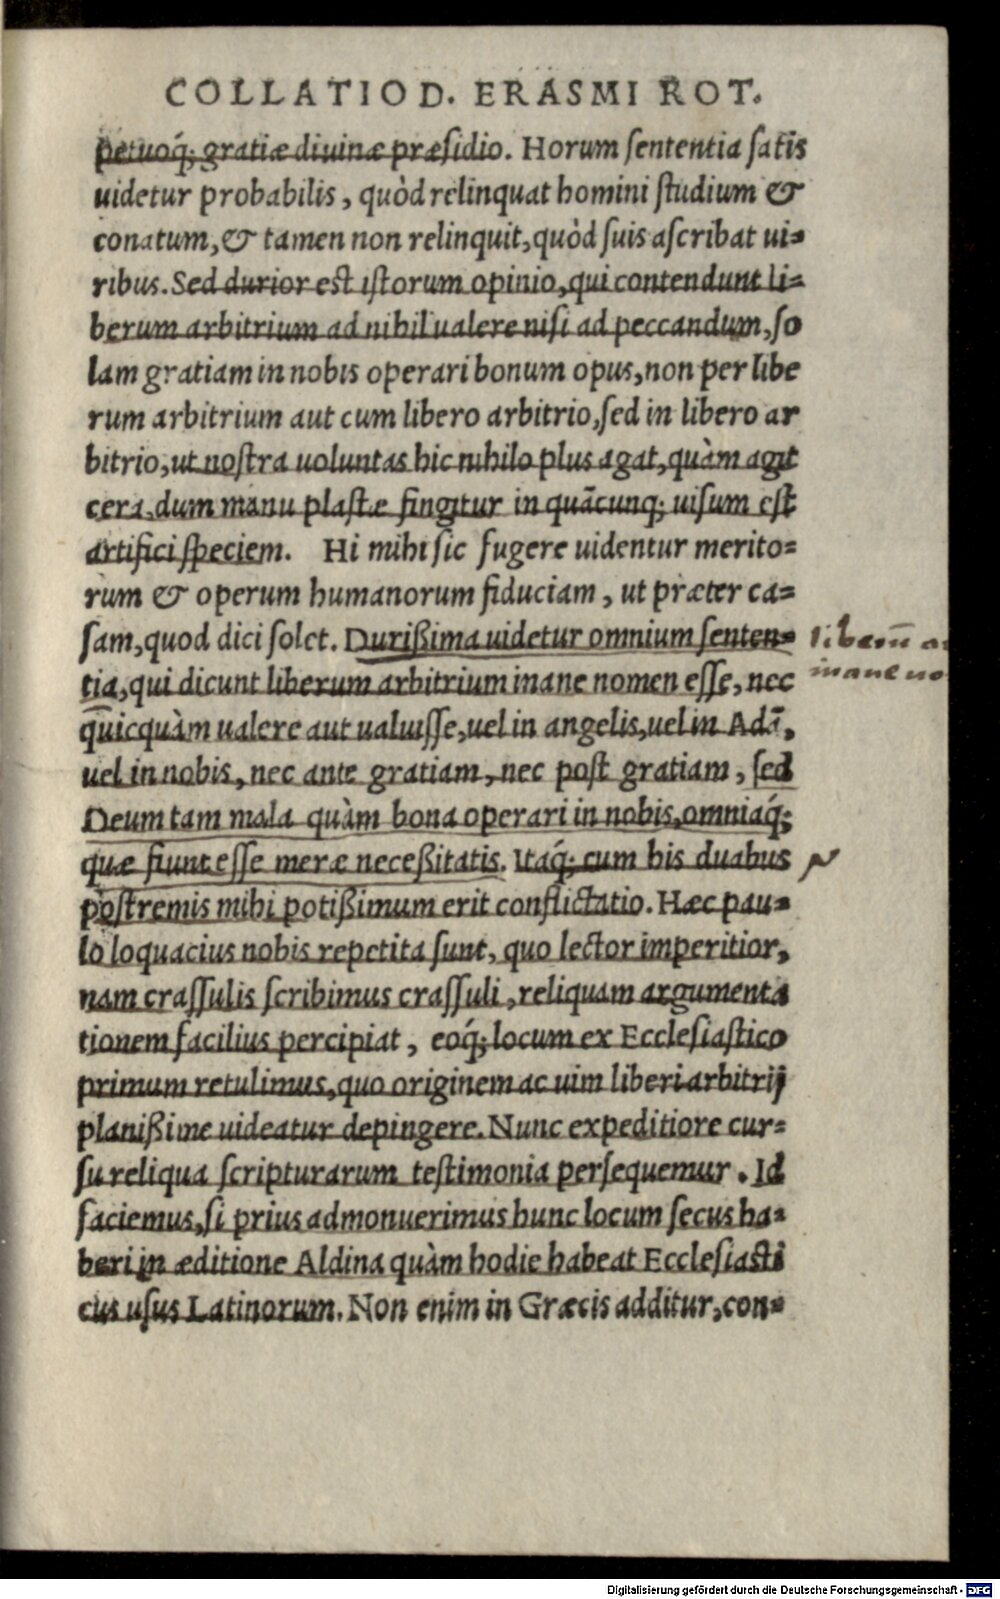 COLLATIO D. ERASMI ROT.
petuoq́; gratiæ diuinæ præſidio. Horum ſententia ſatis
uidetur probabilis, quòd relinquat homini ſtudium &
conatum, & tamen non relinquit, quòd ſuis aſcribat ui=
ribus. Sed durior eſt iſtorum opinio, qui contendunt li=
berum arbitrium ad nihil ualere niſi ad peccandum, ſo
lam gratiam in nobis operari bonum opus, non per libe
rum arbitrium aut cum libero arbitrio, ſed in libero ar
bitrio, ut noſtra uoluntas hic nihilo plus agat, quàm agit
cera, dum manu plaſtæ fingitur in quãcunq; uiſum eſt
artifici ſpeciem. Hi mihi ſic fugere uidentur merito=
rum & operum humanorum fiduciam, ut præter ca=
ſam, quod dici ſolet. Durißima uidetur omnium ſenten=
tia, qui dicunt liberum arbitrium inane nomen eſſe, nec
quicquàm ualere aut ualuiſſe, uel in angelis, uel in Adã,
uel in nobis, nec ante gratiam, nec poſt gratiam, ſed
Deum tam mala quàm bona operari in nobis, omniaq́;
quæ fiunt eſſe meræ neceßitatis. Itaq́; cum his duabus
poſtremis mihi potißimum erit conflictatio. Hæc pau=
lo loquacius nobis repetita ſunt, quo lector imperitior,
nam craſſulis ſcribimus craſſuli, reliquam argumenta
tionem facilius percipiat, eoq́; locum ex Eccleſiaſtico
primum retulimus, quo originem ac uim liberi arbitrij
planißime uideatur depingere. Nunc expeditiore cur=
ſu reliqua ſcripturarum teſtimonia perſequemur. Id
faciemus, ſi prius admonuerimus hunc locum ſecus ha=
beri in æditione Aldina quàm hodie habeat Eccleſiaſti
cus uſus Latinorum. Non enim in Græcis additur, con=
liberũ
inane no
Digitalisierung gefördert durch die Deutsche Forschungsgemeinschaft - DFG